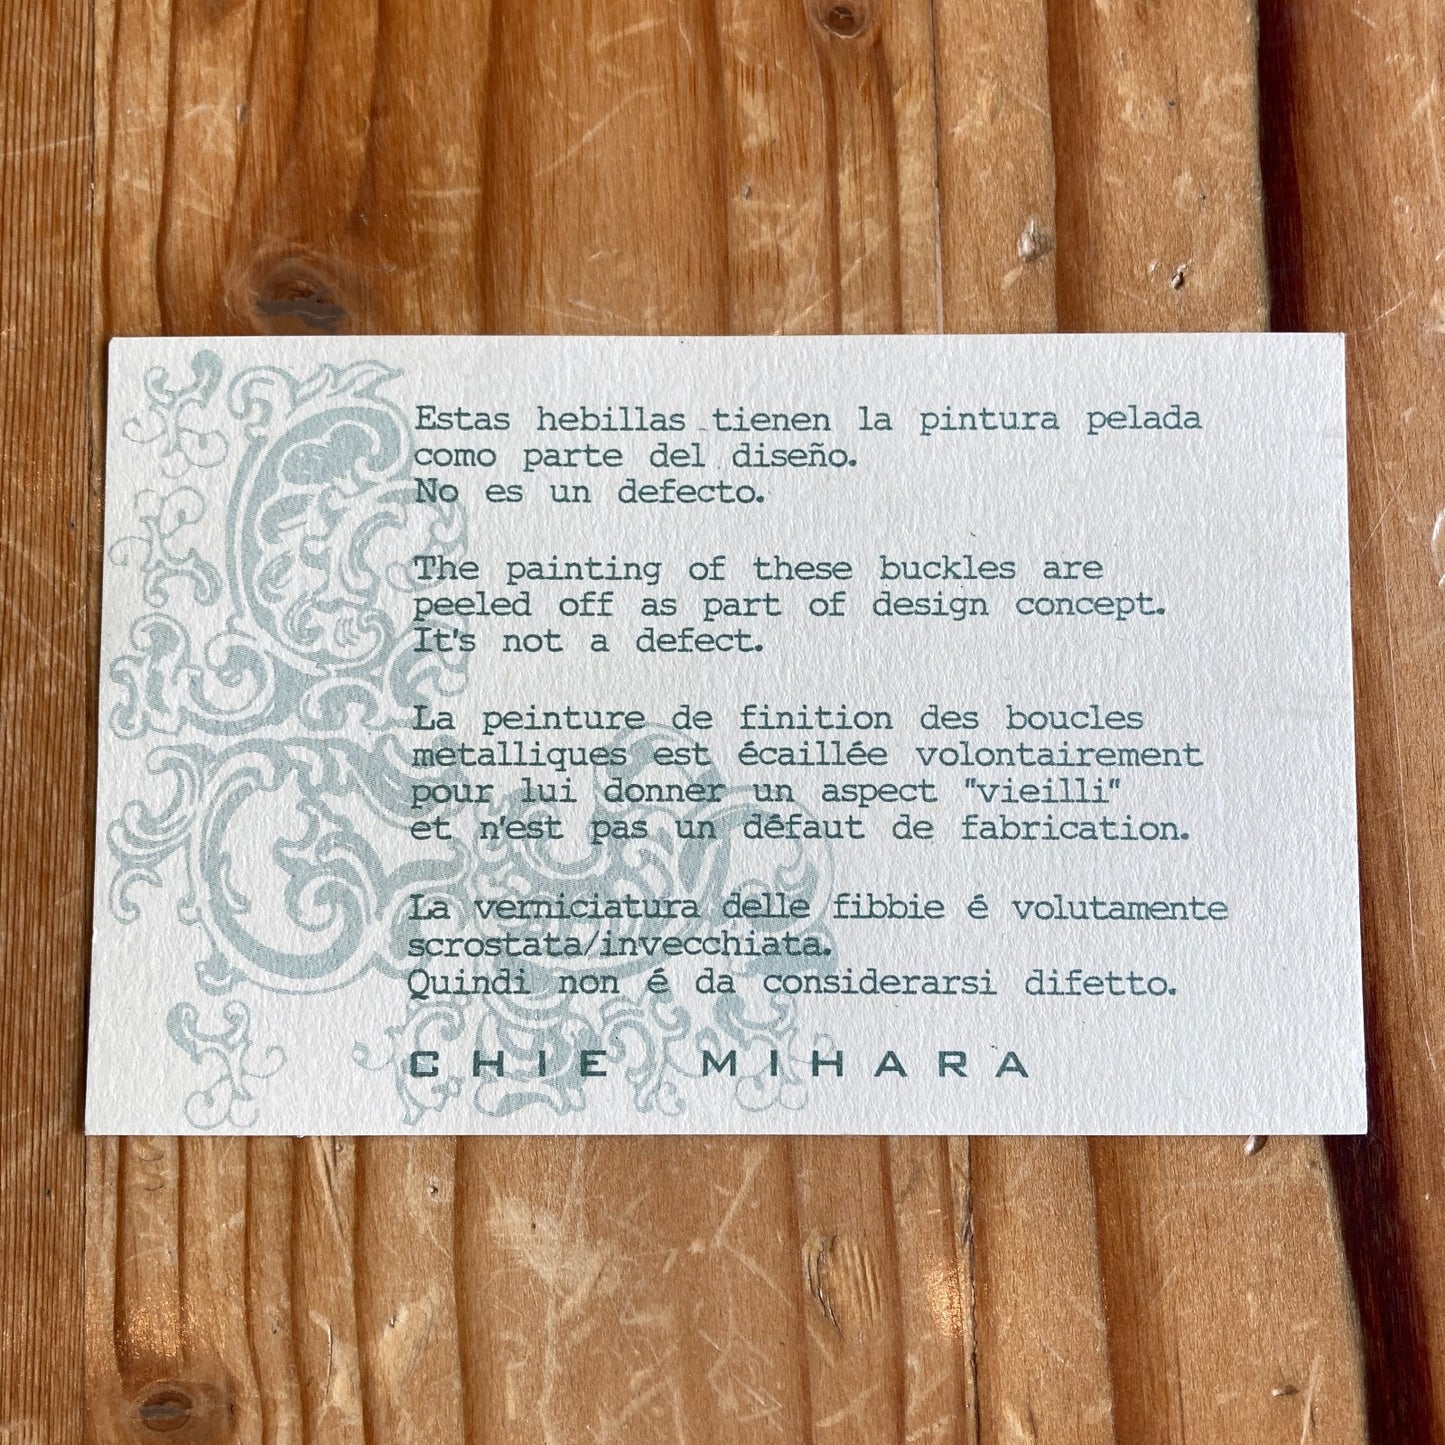 Estas hebillas tienen la pintura pelada
como parte del diseño.
No es un defecto.
The painting of these buckles are
peeled off as part of design concept.
It's not a defect.
La peinture de finition des boucles
metalliques est écaillée volontairement
pour lui donner un aspect "vieilli"
et n'est pas un défaut de fabrication.
La verniciatura delle fibbie é volutamente
scrostata/invecchiata.
Quindi non é da considerarsi difetto.
CHIE MIHARA